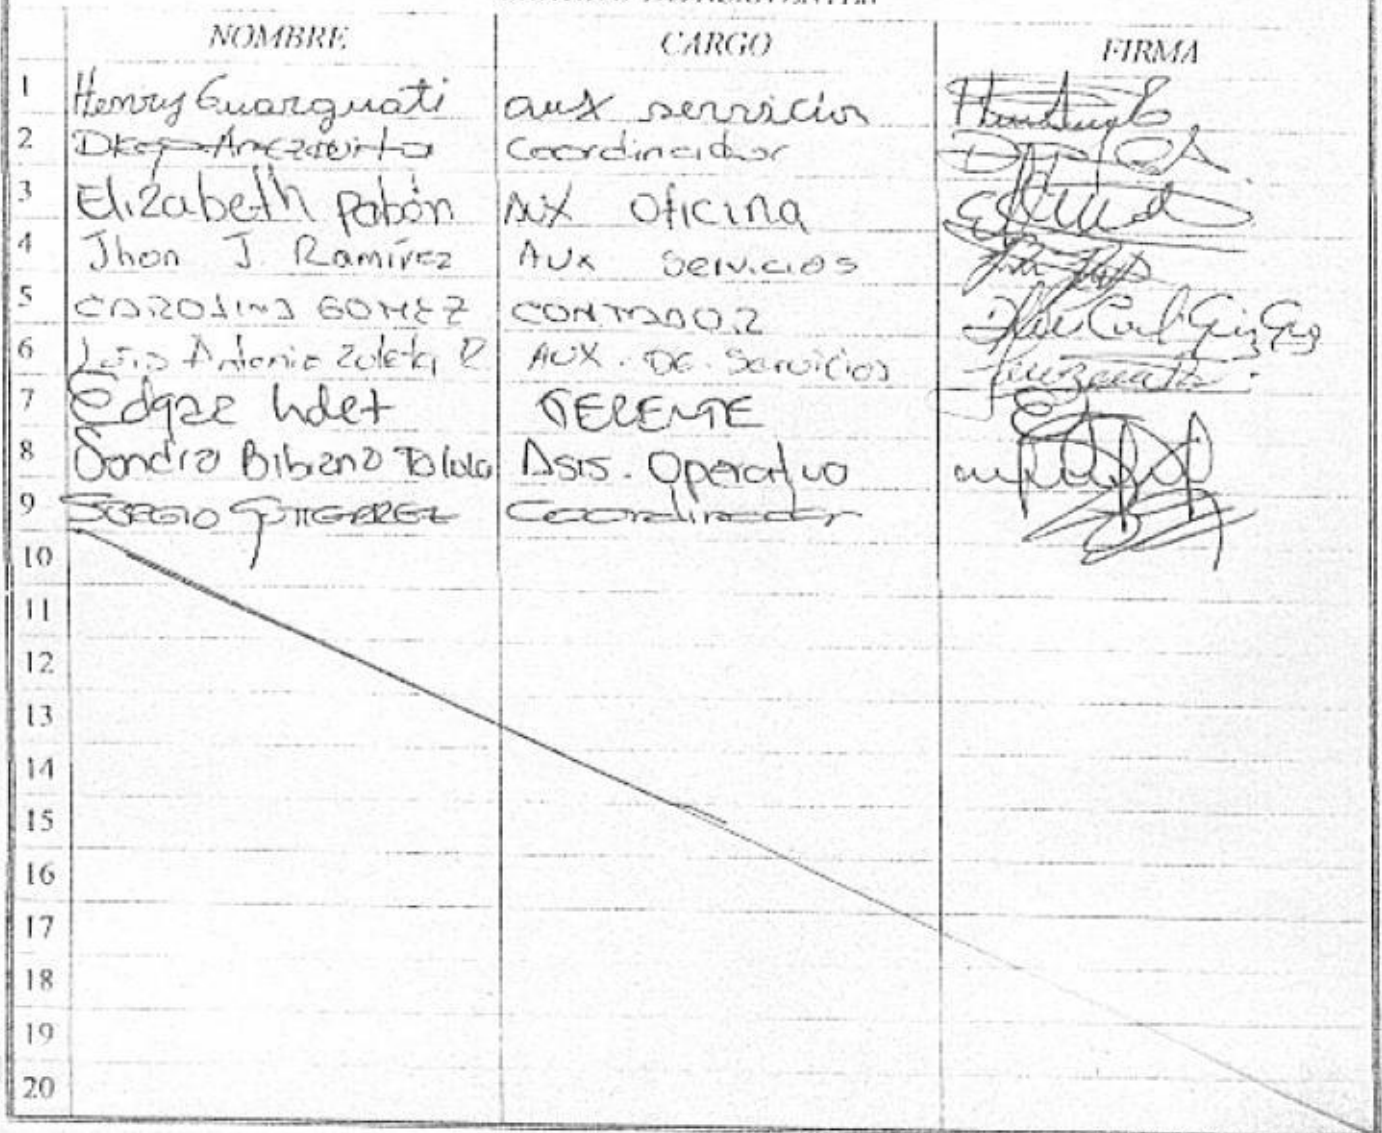 NOMBRE CARGO FIRMA
1 Henry Guarguati aux servicios
2 Diego Coordinador
3 Elizabeth Pabón Aux Oficina
4 Jhon J. Ramírez Aux Servicios
5 CAROLINA GOMEZ CONTADOR
6 Luis Antonio Zuleta R. AUX. DE. Servicios
7 Edgar GERENTE
8 Sandra Bibiana Asis. Operativo
9 SERGIO GUTIERREZ Coordinador
10
11
12
13
14
15
16
17
18
19
20